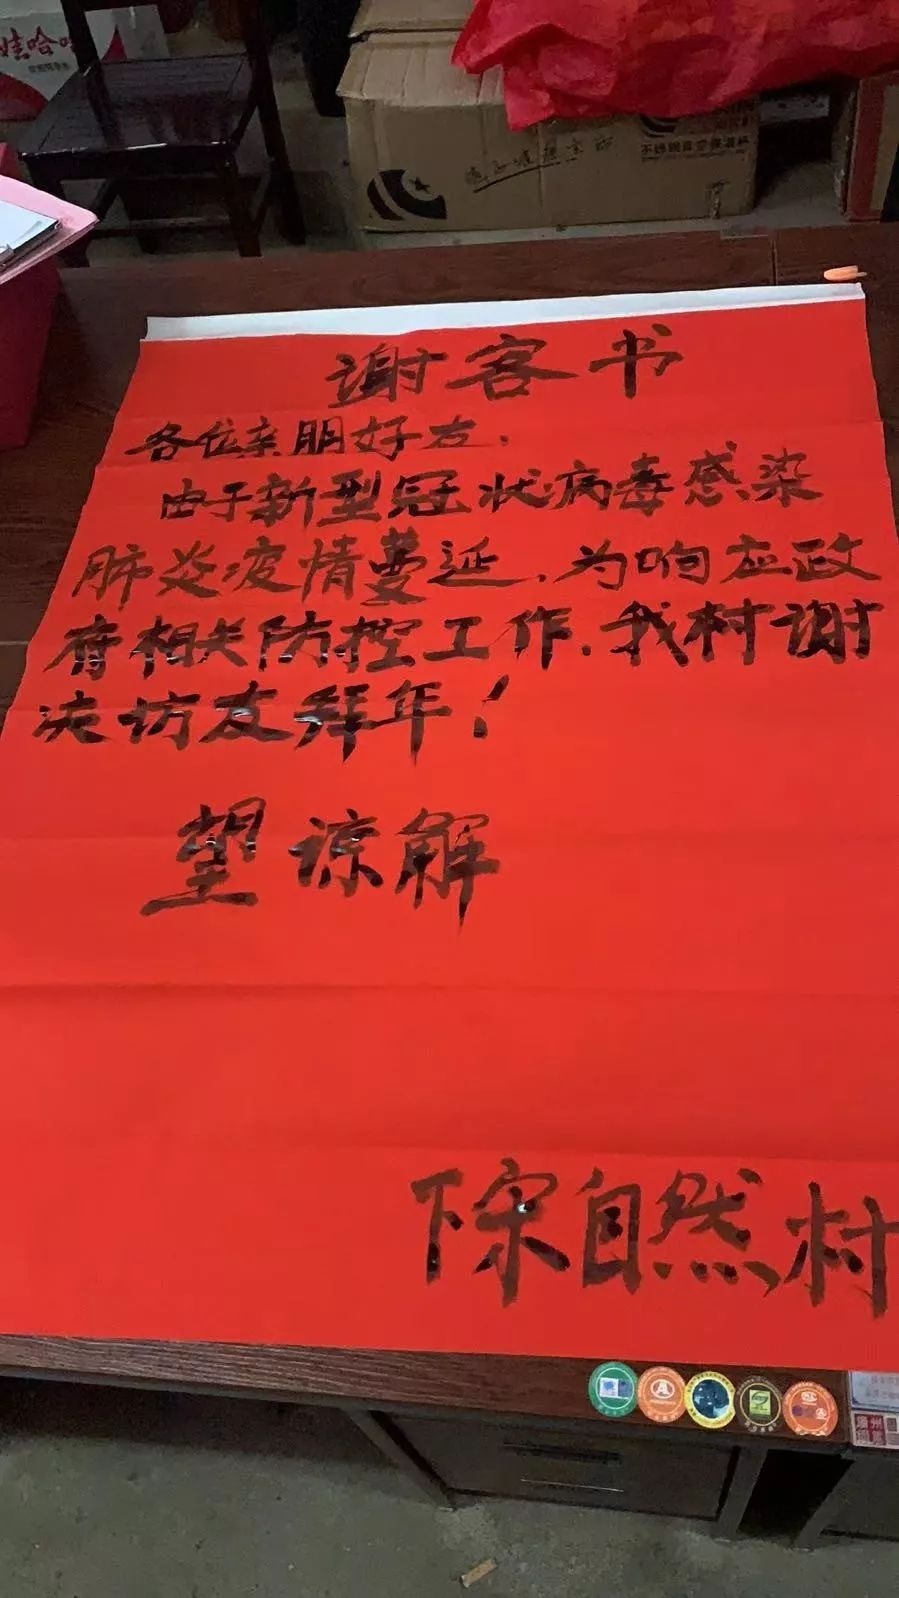 娃哈哈
不锈钢真空保温杯
谢客书
各位亲朋好友.
由于新型冠状病毒感染
肺炎疫情蔓延,为响应政
府相关防控工作.我村谢
决访友拜年!
望谅解
下宋自然村